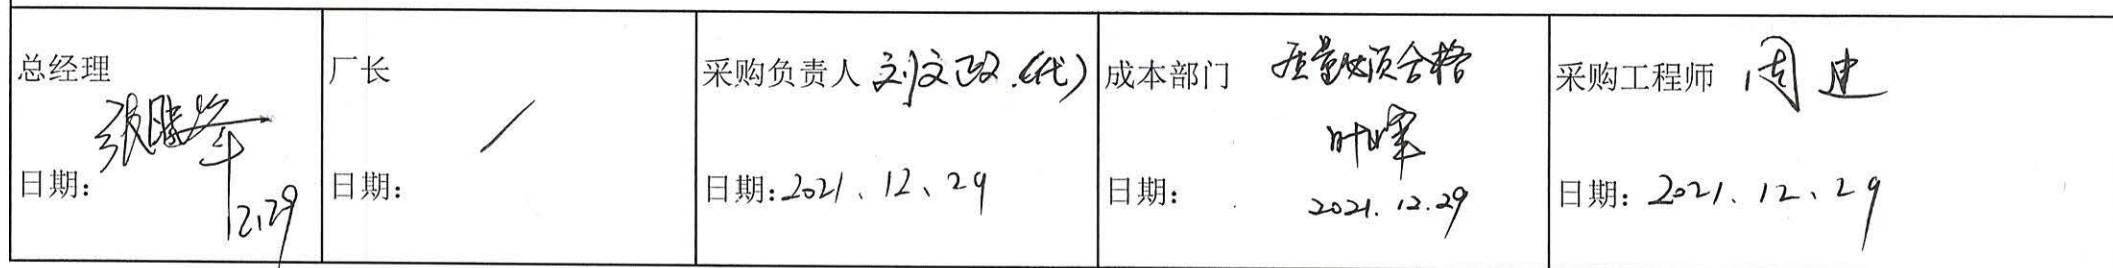 总经理
张
日期:
12.29
厂长
/
日期:
采购负责人 刘文政.(代)
日期:2021、12、29
成本部门 质量必须合格
叶晖
日期: 2021.12.29
采购工程师 周建
日期: 2021.12、29